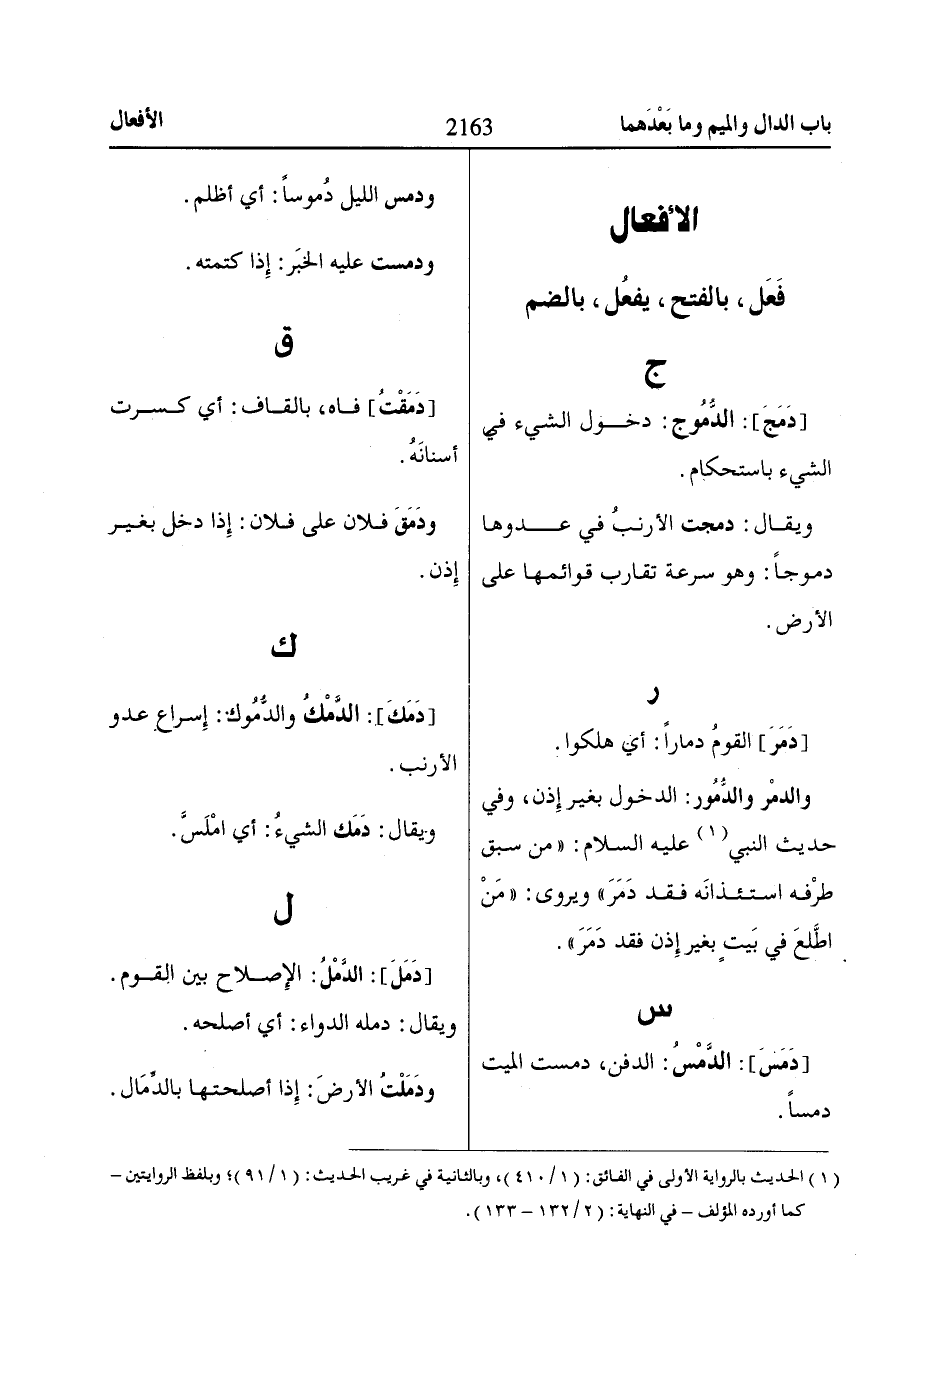 باب الدال والميم وما بَعْدَهما
2163
الأفعال
الأفعال
فَعَل، بالفتح، يفعُل، بالضم
ج
[دَمَجَ]: الدُّمُوج: دخـــول الشيء في
الشيء باستحكام.
ويقـال: دمجت الأرنبُ في عـــدوها
دموجاً: وهو سرعة تقارب قوائمها على
الأرض.
ر
[دَمَرَ] القومُ دماراً: أي هلكوا.
والدمْر والدُّمُور: الدخول بغير إذن، وفي
حديث النبي(١) عليه السلام: «من سبق
طرْفه استئذانَه فقد دَمَرَ» ويروى: «مَنْ
اطَّلعَ في بَيت بغير إذن فقد دَمَرَ».
س
[دَمَسَ]: الدَّمْسُ: الدفن، دمست الميت
دمساً.
ودمس الليل دُموساً: أي أظلم.
ودمست عليه الخبَر: إذا كتمته.
ق
[دَمَقْتُ] فـاه، بالقـاف: أي كـسـرت
أسنانَهُ.
ودَمَقَ فـلان على فـلان: إذا دخل بغيـر
إذن.
ك
[دَمَكَ]: الدَّمْكُ والدُّمُوك: إسراع عدو
الأرنب.
ويقال: دَمَك الشيءُ: أي امْلَسَّ.
ل
[دَمَلَ]: الدَّمْلُ: الإصـلاح بين القـوم.
ويقال: دمله الدواء: أي أصلحه.
ودَمَلْتُ الأرضَ: إذا أصلحتـها بالدِّمَال.
(١) الحديث بالرواية الأولى في الفائق: (٤١٠/١)، وبالثانية في غريب الحديث: (٩١/١)؛ وبلفظ الروايتين –
كما أورده المؤلف – في النهاية: (١٣٢/٢ – ١٣٣).